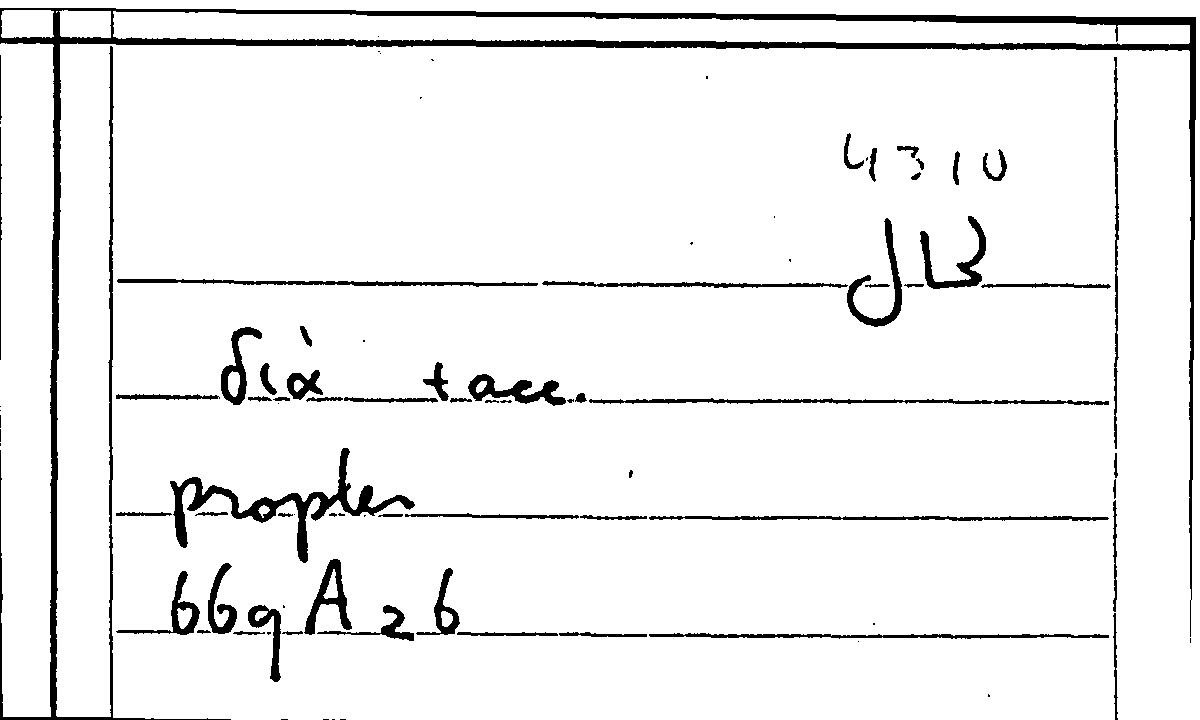 4310
JB
διὰ +acc.
propter
669A26